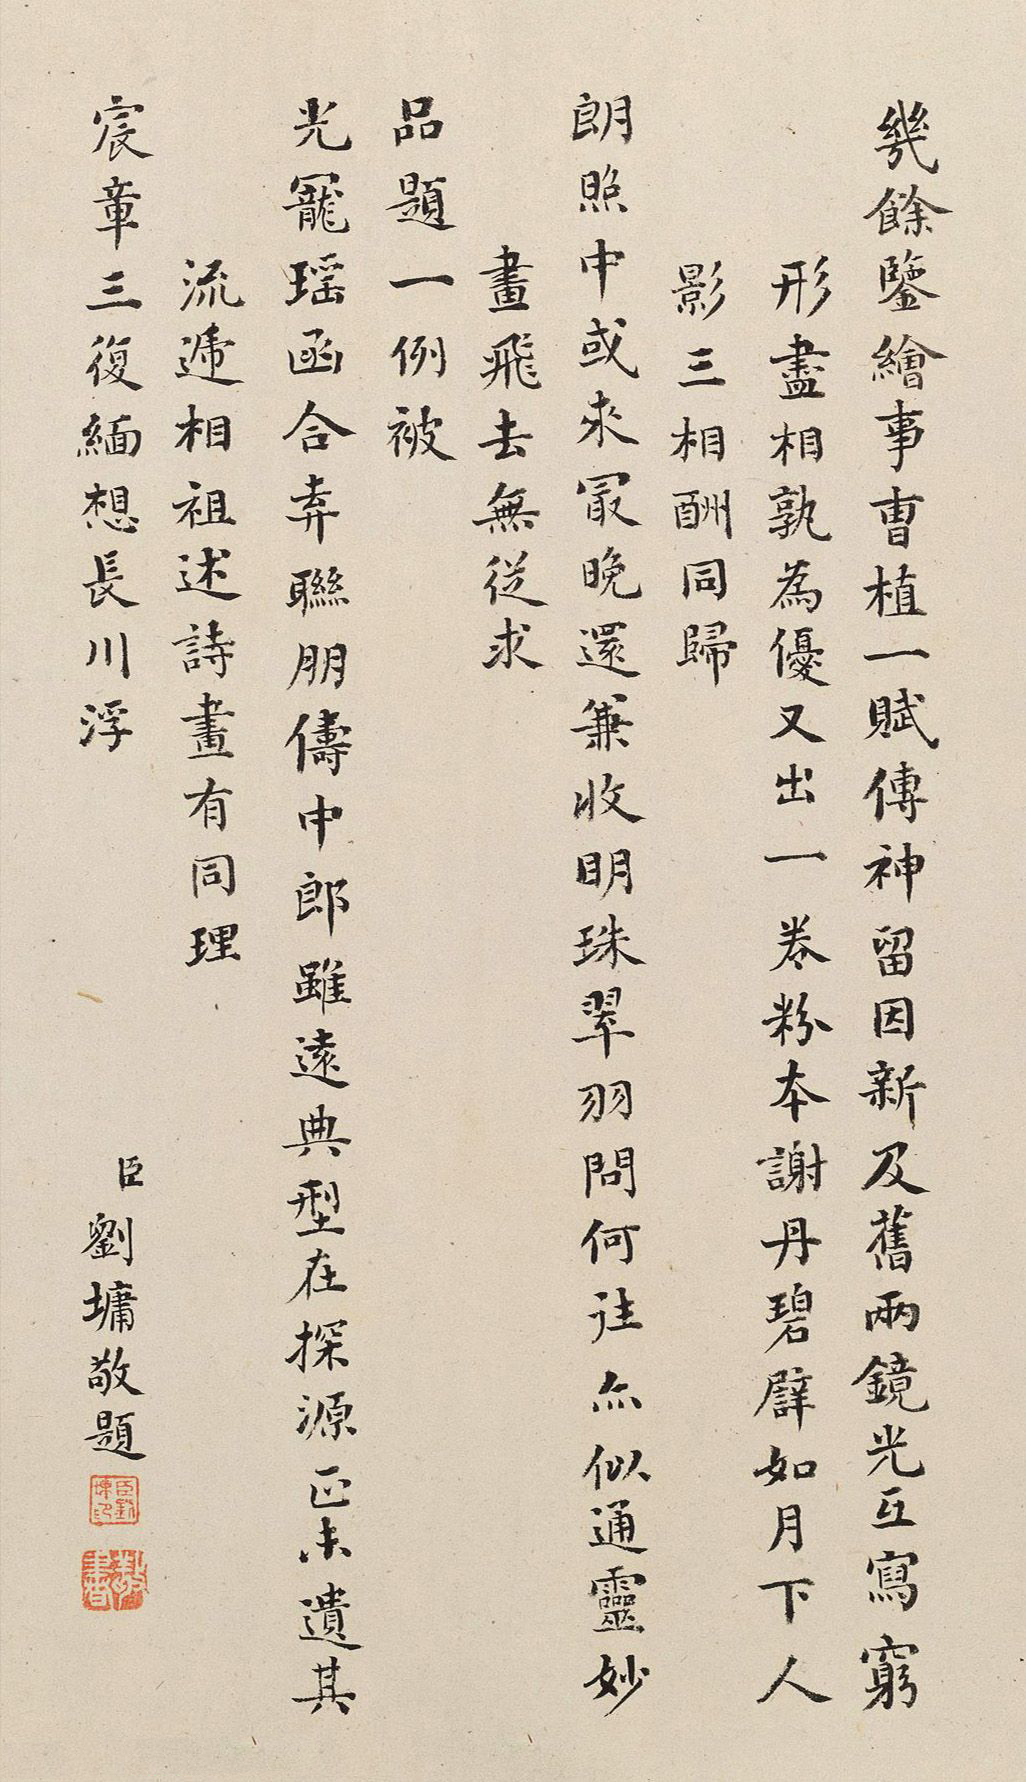 幾餘鑒繪事曺植一賦傳神留因新及舊兩鏡光互寫窮
形盡相孰為優又出一卷粉本謝丹碧譬如月下人
影三相酬同歸
朗照中或來冣晚還兼收明珠翠羽問何往亦似通靈妙
畫飛去無從求
品題一例被
光寵瑶函合弆聯朋儔中郎雖遠典型在探源正未遺其
流遞相祖述詩畫有同理
宸章三復緬想長川浮
臣劉墉敬題